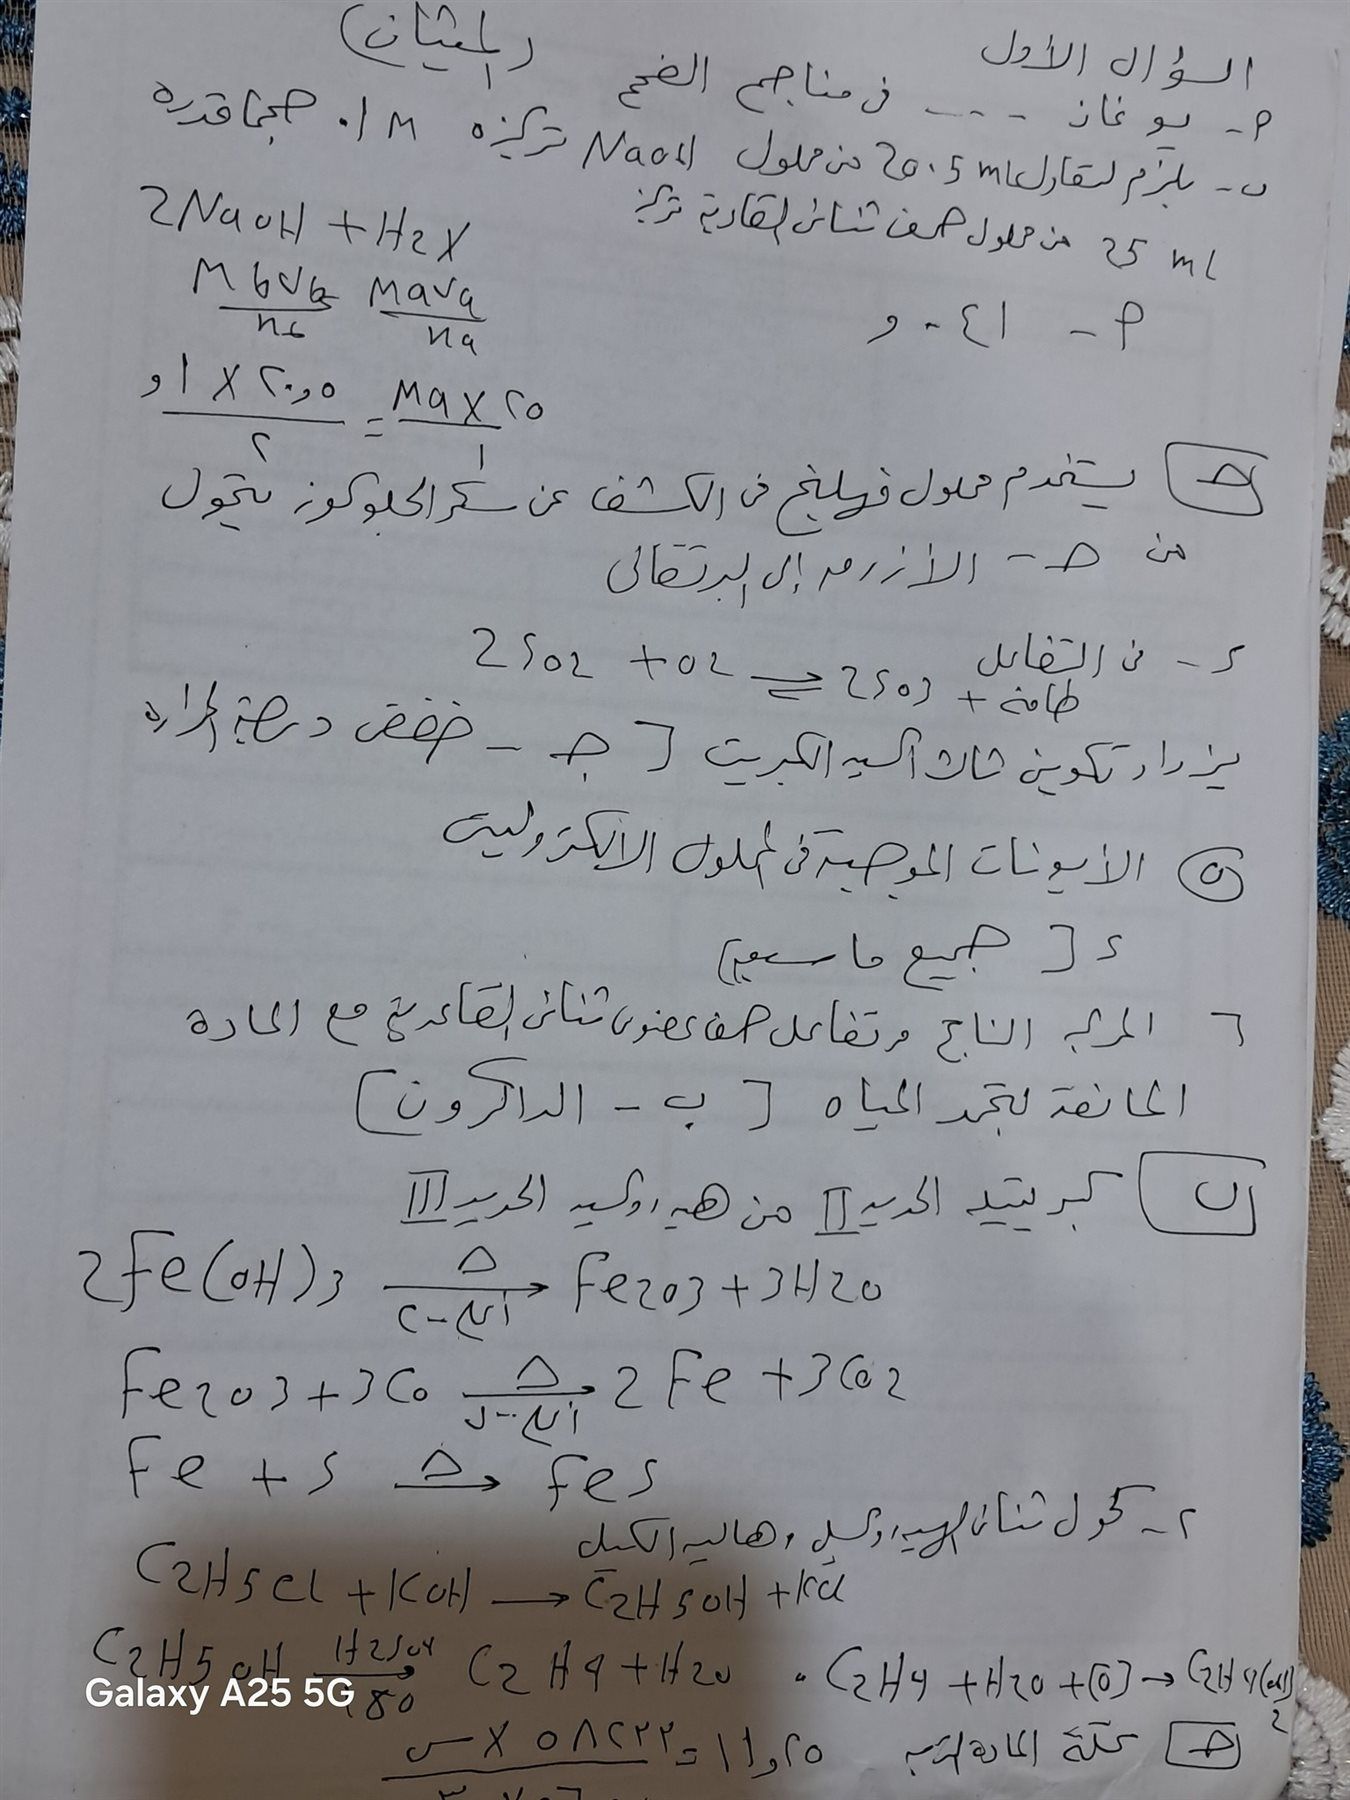 السؤال الأول (الميثان)
٢- يو غاز .... فى مناجم الفحم
ب- يلزم لتعادل 20.5 mL من محلول NaOH تركيزه 0.1 M حجما قدره
25 mL من محلول حمض ثنائى القاعدية تركيز
2NaOH + H2X
MbVb = MaVa
nb na
٢ - ٠٤١ و
٢٠,٥ X ١ و = Ma X ٢٥
٢ ١
ج يستخدم محلول فهلينج فى الكشف عن سكر الجلوكوز يتحول
من ح - الأزرق إلى البرتقالى
د - فى التفاعل 2SO2 + O2 ⇌ 2SO3 + طاقة
يزداد تكوين ثالث أكسيد الكبريت [ جـ - خفض درجة الحرارة
٥ الأيونات الموجبة فى المحلول الالكتروليتى
د [ جميع ما سبق ]
٦ المركب الناتج من تفاعل حمض عضوى ثنائى القاعدية مع المادة
المانعة لتجمد المياه [ ب - الداكرون ]
ب كبريتيد الحديد II من هيدروكسيد الحديد III
2Fe(OH)3 △→ أعلى ٢٠٠ Fe2O3 + 3H2O
Fe2O3 + 3CO △→ أعلى ٧٠٠ 2Fe + 3CO2
Fe + S △→ FeS
٢- كحول ثنائى الهيدروكسيل من هاليد الكيل
C2H5Cl + KOH → C2H5OH + KCl
C2H5OH H2SO4→ 180 C2H4 + H2O . C2H4 + H2O + [O] → C2H4(OH)2
ج كتلة المادة المترسبة
Galaxy A25 5G